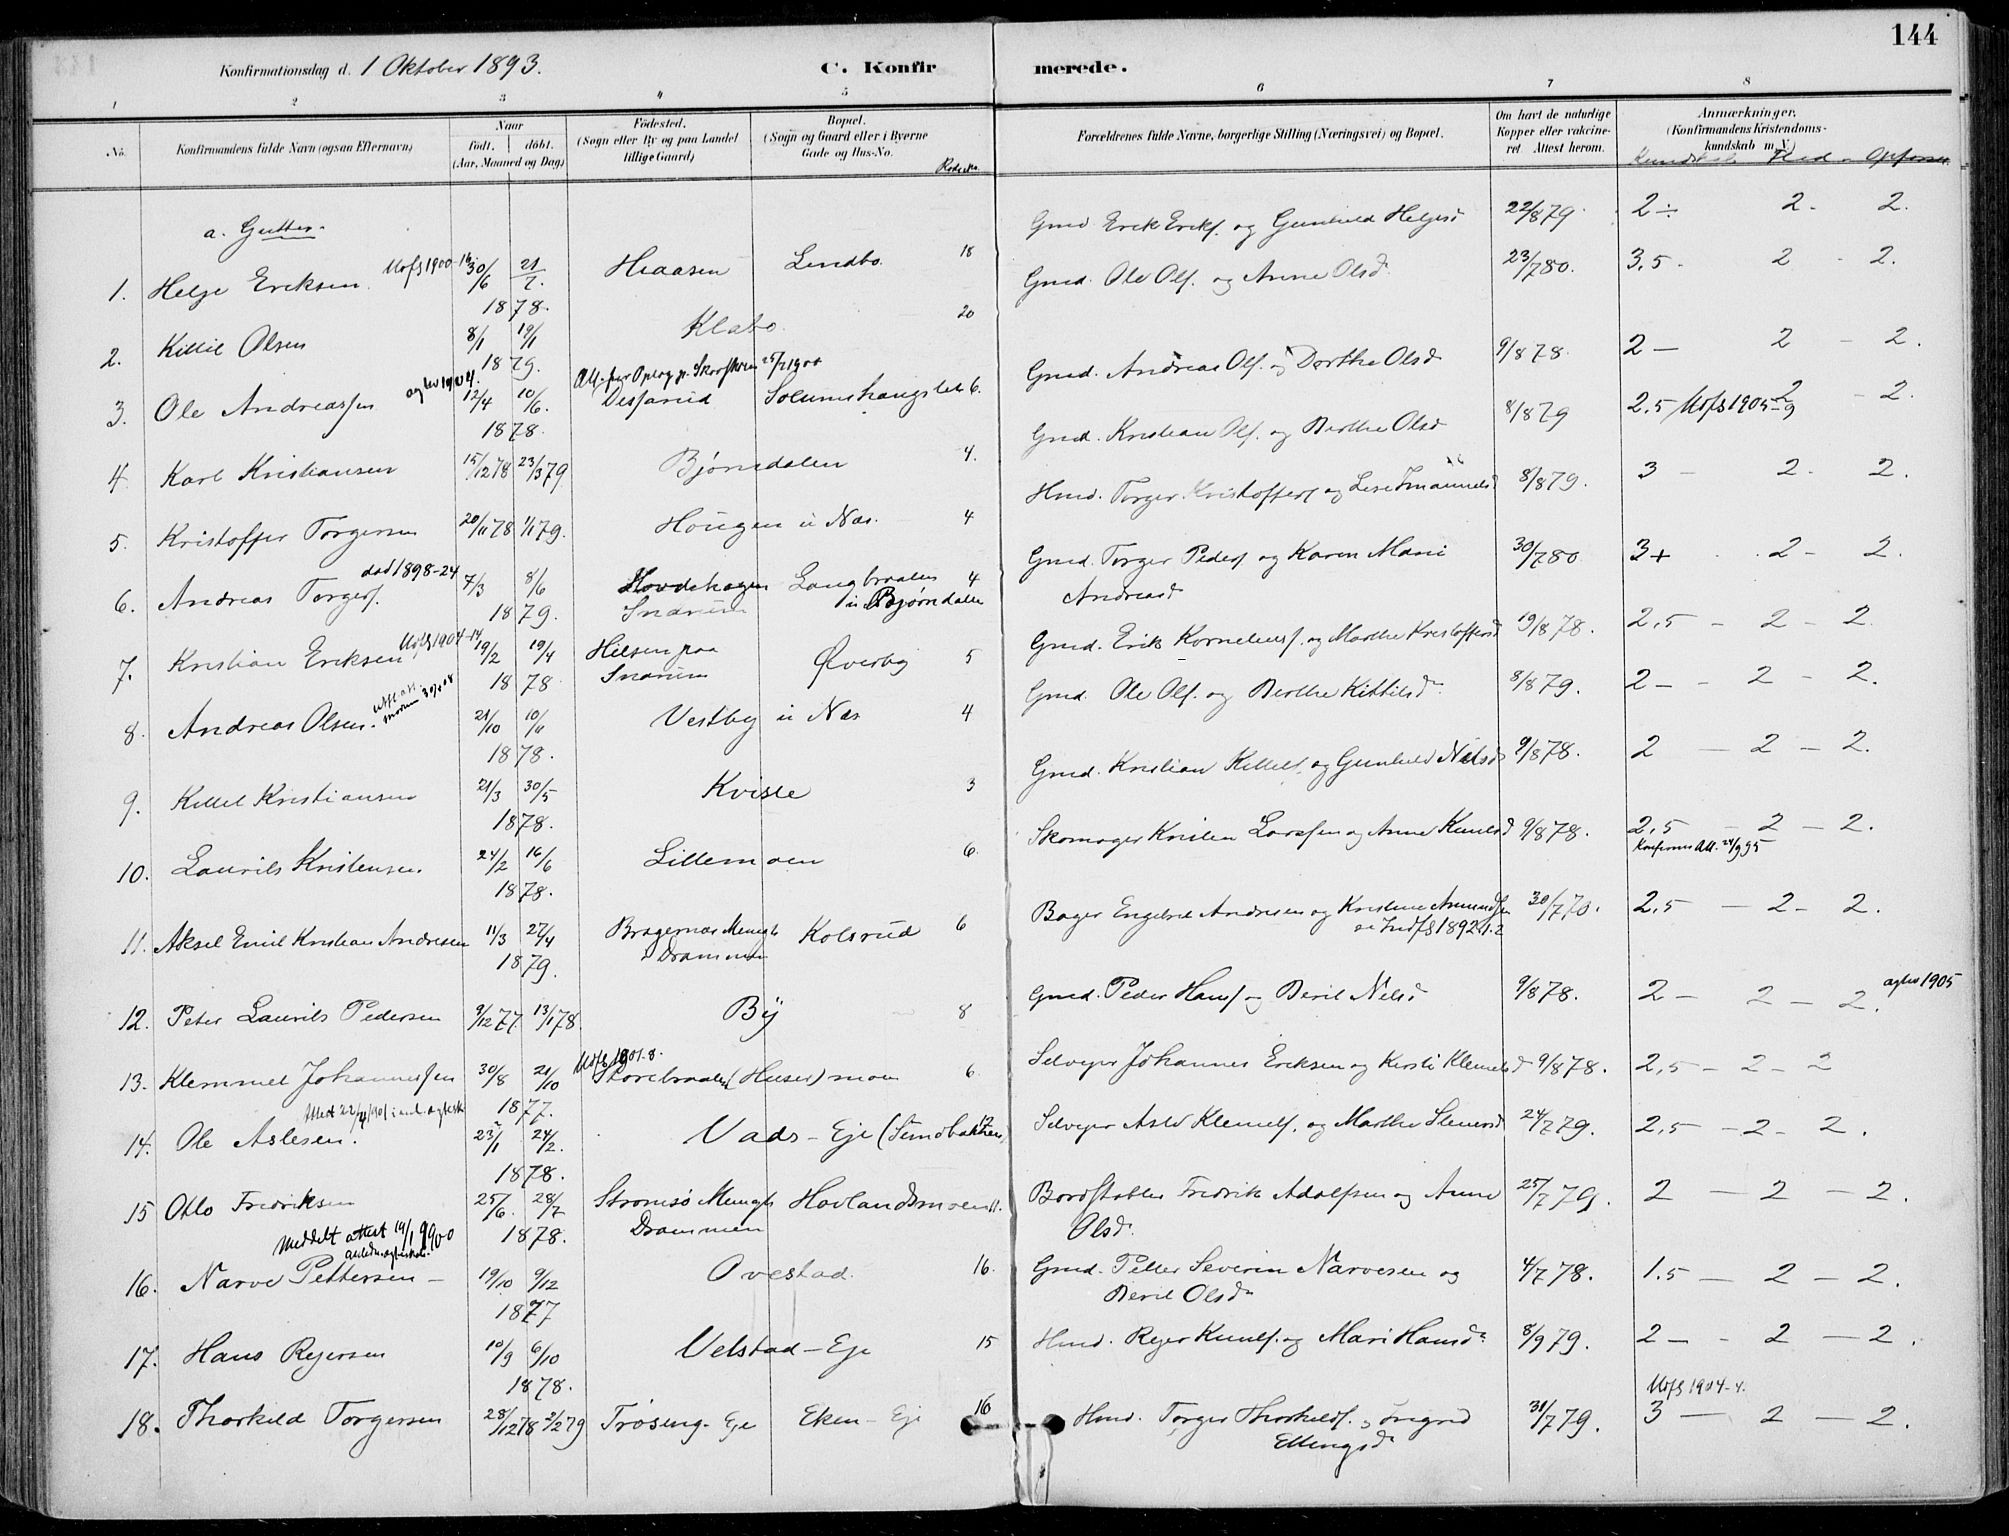 144
Konfirmationsdag d. 1 Oktober 1893. C. Konfirmerede.
1 2 3 4 5 6 7 8
No. Konfirmandens fulde Navn (ogsaa Efternavn)
Naar født. døbt. (Aar, Maaned og Dag)
Fødested. (Sogn eller By og paa Landet tillige Gaard)
Bopæl. (Sogn og Gaard eller i Byerne Gade og Hus-No.
Rode No.
Forældrenes fulde Navne, borgerlige Stilling (Næringsvei) og Bopæl.
Om havt de naturlige Kopper eller vakcineret. Attest herom.
Anmærkninger. (Konfirmandens Kristendomskundskab m. V.)
Kundskab Flid - Opførsel
a. Gutter.
1. Helge Eriksen. Utfl 1900-16. 30/6 21/7 1878. Haasen Lindbo 18 Gmd. Erik Eriks. og Gunhild Helgesd 22/8 79. 2 ÷ 2 - 2.
2. Kittil Olsen 8/1 19/1 1879. Klabo. 20 Gmd. Ole Ols. og Anne Olsd. 23/7 80. 3,5 - 2 - 2.
3. Ole Andreassen 12/4 10/6. 1878. 6. Gmd. Andreas Ols. og Dorthe Olsd 9/8 78. 2 - 2 - 2.
4. Karl Kristiansen 15/12 78 23/3 79 Bjørndalen 4. Gmd. Kristian Ols. og Berthe Olsd 8/8 79 2,5 Utfl 1905-9 2 - 2.
5. Kristoffer Torgersen 20/11 78 1/1 79. Hougen u Næs. 4 Hmd. Torger Kristoffers og Lise 8/8 79. 3 - 2 - 2.
6. Andreas Torgers. død 1898-24 7/3 8/6 1879. Hovdehagen Snarum Langbraaten u Bjørndalen 4 Gmd. Torger Peders og Karen Marie Andreasd 30/7 80 3+ 2 - 2.
7. Kristian Eriksen Utfl 1904-14 19/2 19/4 1878. Hilsen paa Snarum Øverby 5 Gmd. Erik Kornelius. og Marthe Kristoffersd 19/8 78. 2,5 - 2 - 2.
8. Andreas Olsen. 21/10 10/11 1878. Vestby u Næs 4 Gmd. Ole Ols. og Berthe Kittilsd. 8/8 79. 2 - 2 - 2.
9. Kittil Kristiansen 21/3 30/5 1878. Kvisle 3 Gmd. Kristian Kittils. og Gunhild Nilsd 9/8 78. 2 - 2 - 2.
10. Laurits Kristensen. 24/2 16/6 1878. Lillemoen 6. Skomager Kristen Larssen og Anne Knutsd 9/8 78. 2,5 - 2 - 2.
Konfirms Att. 24/9 95
11. Aksel Emil Kristian Andresen 11/3 27/4 1879. Bragernæs Menigh Drammen Kolsrud 6 Bager Engebret Andresen og Kristine Amundsen se Indfl 1892 30/7 70. 2,5 - 2 - 2.
12. Peter Laurits Pedersen 9/12 77. 13/1 78. By 8 Gmd. Peder Hans og Berit Nilsd 9/8 78. 2 - 2 - 2. agtev 1905
13. Klemmet Johannessen 30/8 21/10 1877. Utfl 1901-8. Storebraaten (Huser) moen 6. Selveier Johannes Eriksen og Kersti Klemetsd 9/8 78. 2,5 - 2 - 2
14. Ole Aslesen. 23/1 24/2. 1878. Vads - Eje 12 Selveier Asle Klemets. og Marthe 24/7 79. 2,5 - 2 - 2.
15 Otto Fredriksen 25/6. 28/7 1878. Strømsø Menigh Drammen Hovlandsmoen 11. Bordstabler Fredrik Adolfsen og Anne Olsd. 25/7 79. 2 - 2 - 2.
Meddelt attest 19/1 1900
16. Narve Pettersen - 19/10 9/12 1877 Ovestad. 16. Gmd. Petter Severin Narvesen og Berit Olsd. 4/7 78. 1.5 - 2 - 2.
17. Hans Reiersen 10/9 6/10 1878. Velstad - Eje 15 Hmd. Reier Knuts. og Mari Hansd. 8/9 79. 2 - 2 - 2.
18. Thorkild Torgersen 28/12 78 2/2 79 Trøseng - Eje Eken - Eje 16 Hmd. Torger Thorkilds. og Ingrid Ellingsd 31/7 79. Utfl 1904-4. 3 - 2 - 2.